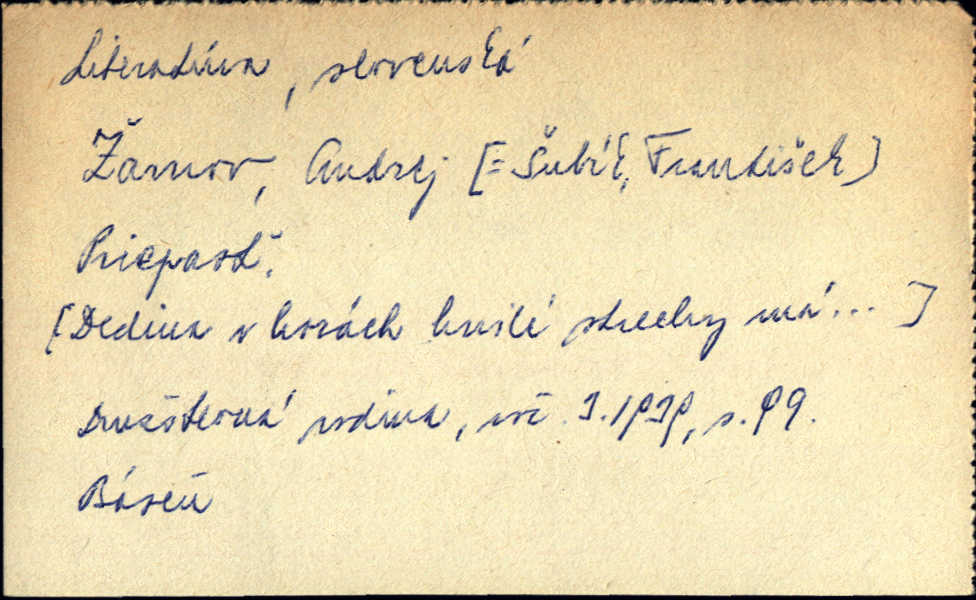 Literatúra, slovenská
Žarnov, Andrej [= Šubík, František]
Priepasť.
[Dedina v horách hnilé strechy má... ]
rodina, roč. I. 1939, s. 99.
Báseň